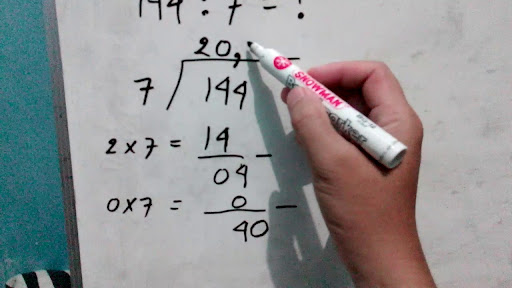 144 : 7 = ?
20,
7 144
2 x 7 = 14 -
04
0 x 7 = 0 -
40
SNOWMAN